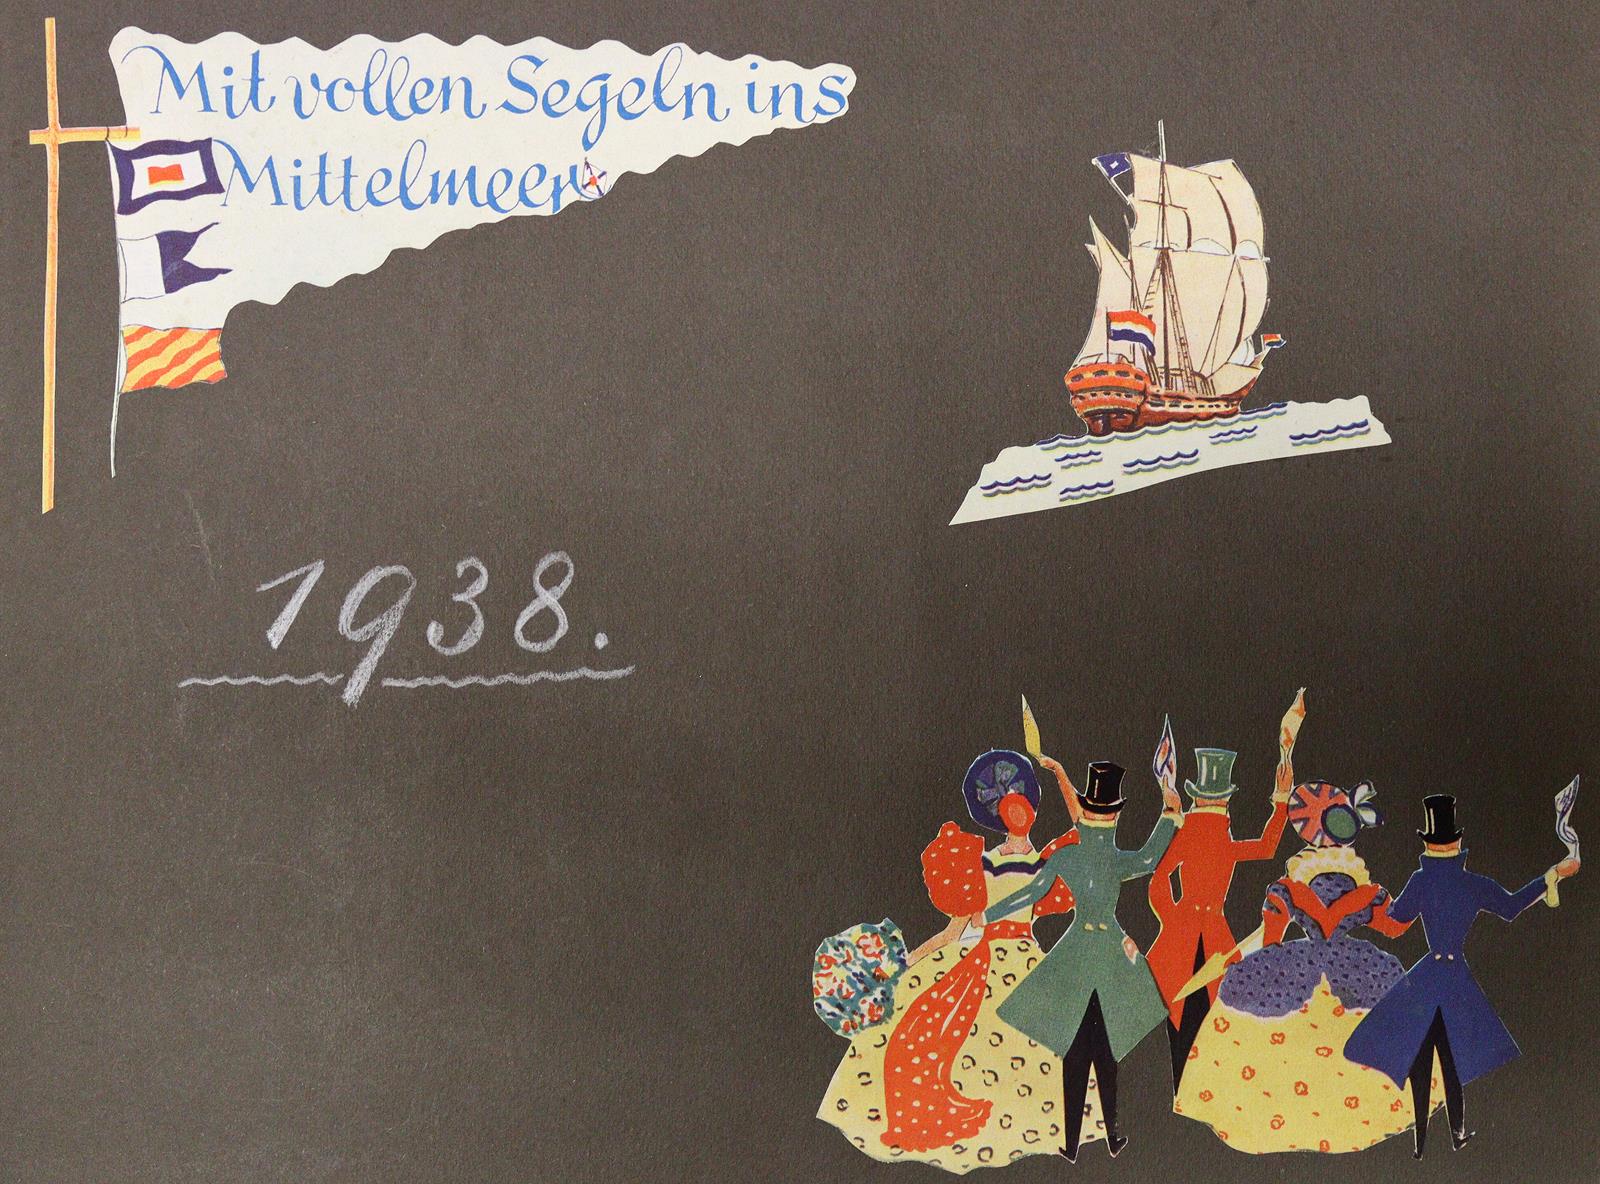 Mit vollen Segeln ins
Mittelmeer
1938.